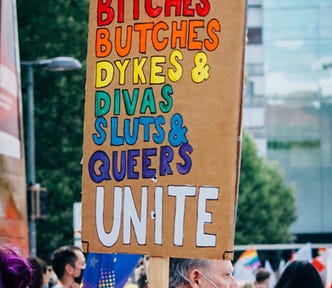 BITCHES
BUTCHES
DYKES &
DIVAS
SLUTS &
QUEERS
UNITE